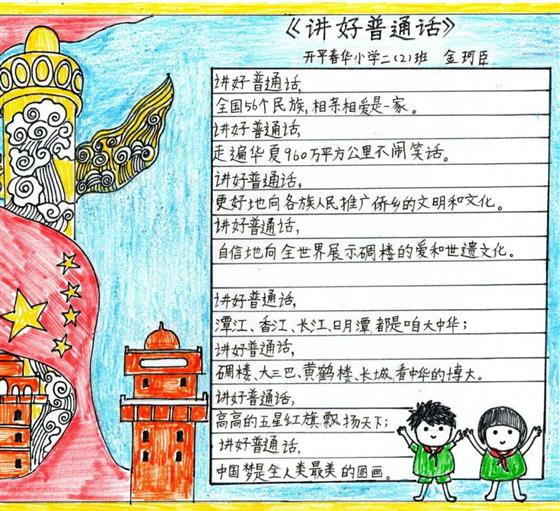 《讲好普通话》
开平春华小学二(2)班 金珂臣
讲好普通话,
全国56个民族,相亲相爱是一家。
讲好普通话,
走遍华夏960万平方公里不闹笑话。
讲好普通话,
更好地向各族人民推广侨乡的文明和文化。
讲好普通话,
自信地向全世界展示碉楼的爱和世遗文化。
讲好普通话,
潭江、香江、长江、日月潭都是咱大中华;
讲好普通话,
碉楼、大三巴、黄鹤楼、长城,看中华的博大。
讲好普通话,
高高的五星红旗飘扬天下;
讲好普通话,
中国梦是全人类最美的图画。